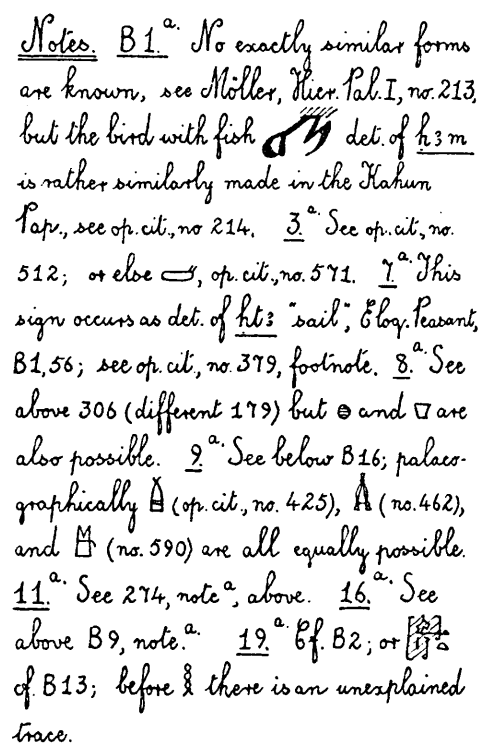 Notes. B1.ᵃ· No exactly similar forms
are known, see Möller, Hier. Pal. I, no. 213,
but the bird with fish det. of ḥꜣm
is rather similarly made in the Kahun
Pap., see op. cit., no 214. 3.ᵃ· See op. cit., no.
512; or else , op. cit., no. 571. 7.ᵃ· This
sign occurs as det. of ḥtꜣ "sail", Eloq. Peasant,
B1, 56; see op. cit., no. 379, footnote. 8.ᵃ· See
above 306 (different 179) but 𓐍 and are
also possible. 9.ᵃ· See below B16; palaeo-
graphically (op. cit., no. 425), (no. 462),
and (no. 590) are all equally possible.
11.ᵃ· See 274, noteᵃ, above. 16.ᵃ· See
above B9, note.ᵃ· 19.ᵃ· Cf. B2; or
cf. B13; before 𓎛 there is an unexplained
trace.